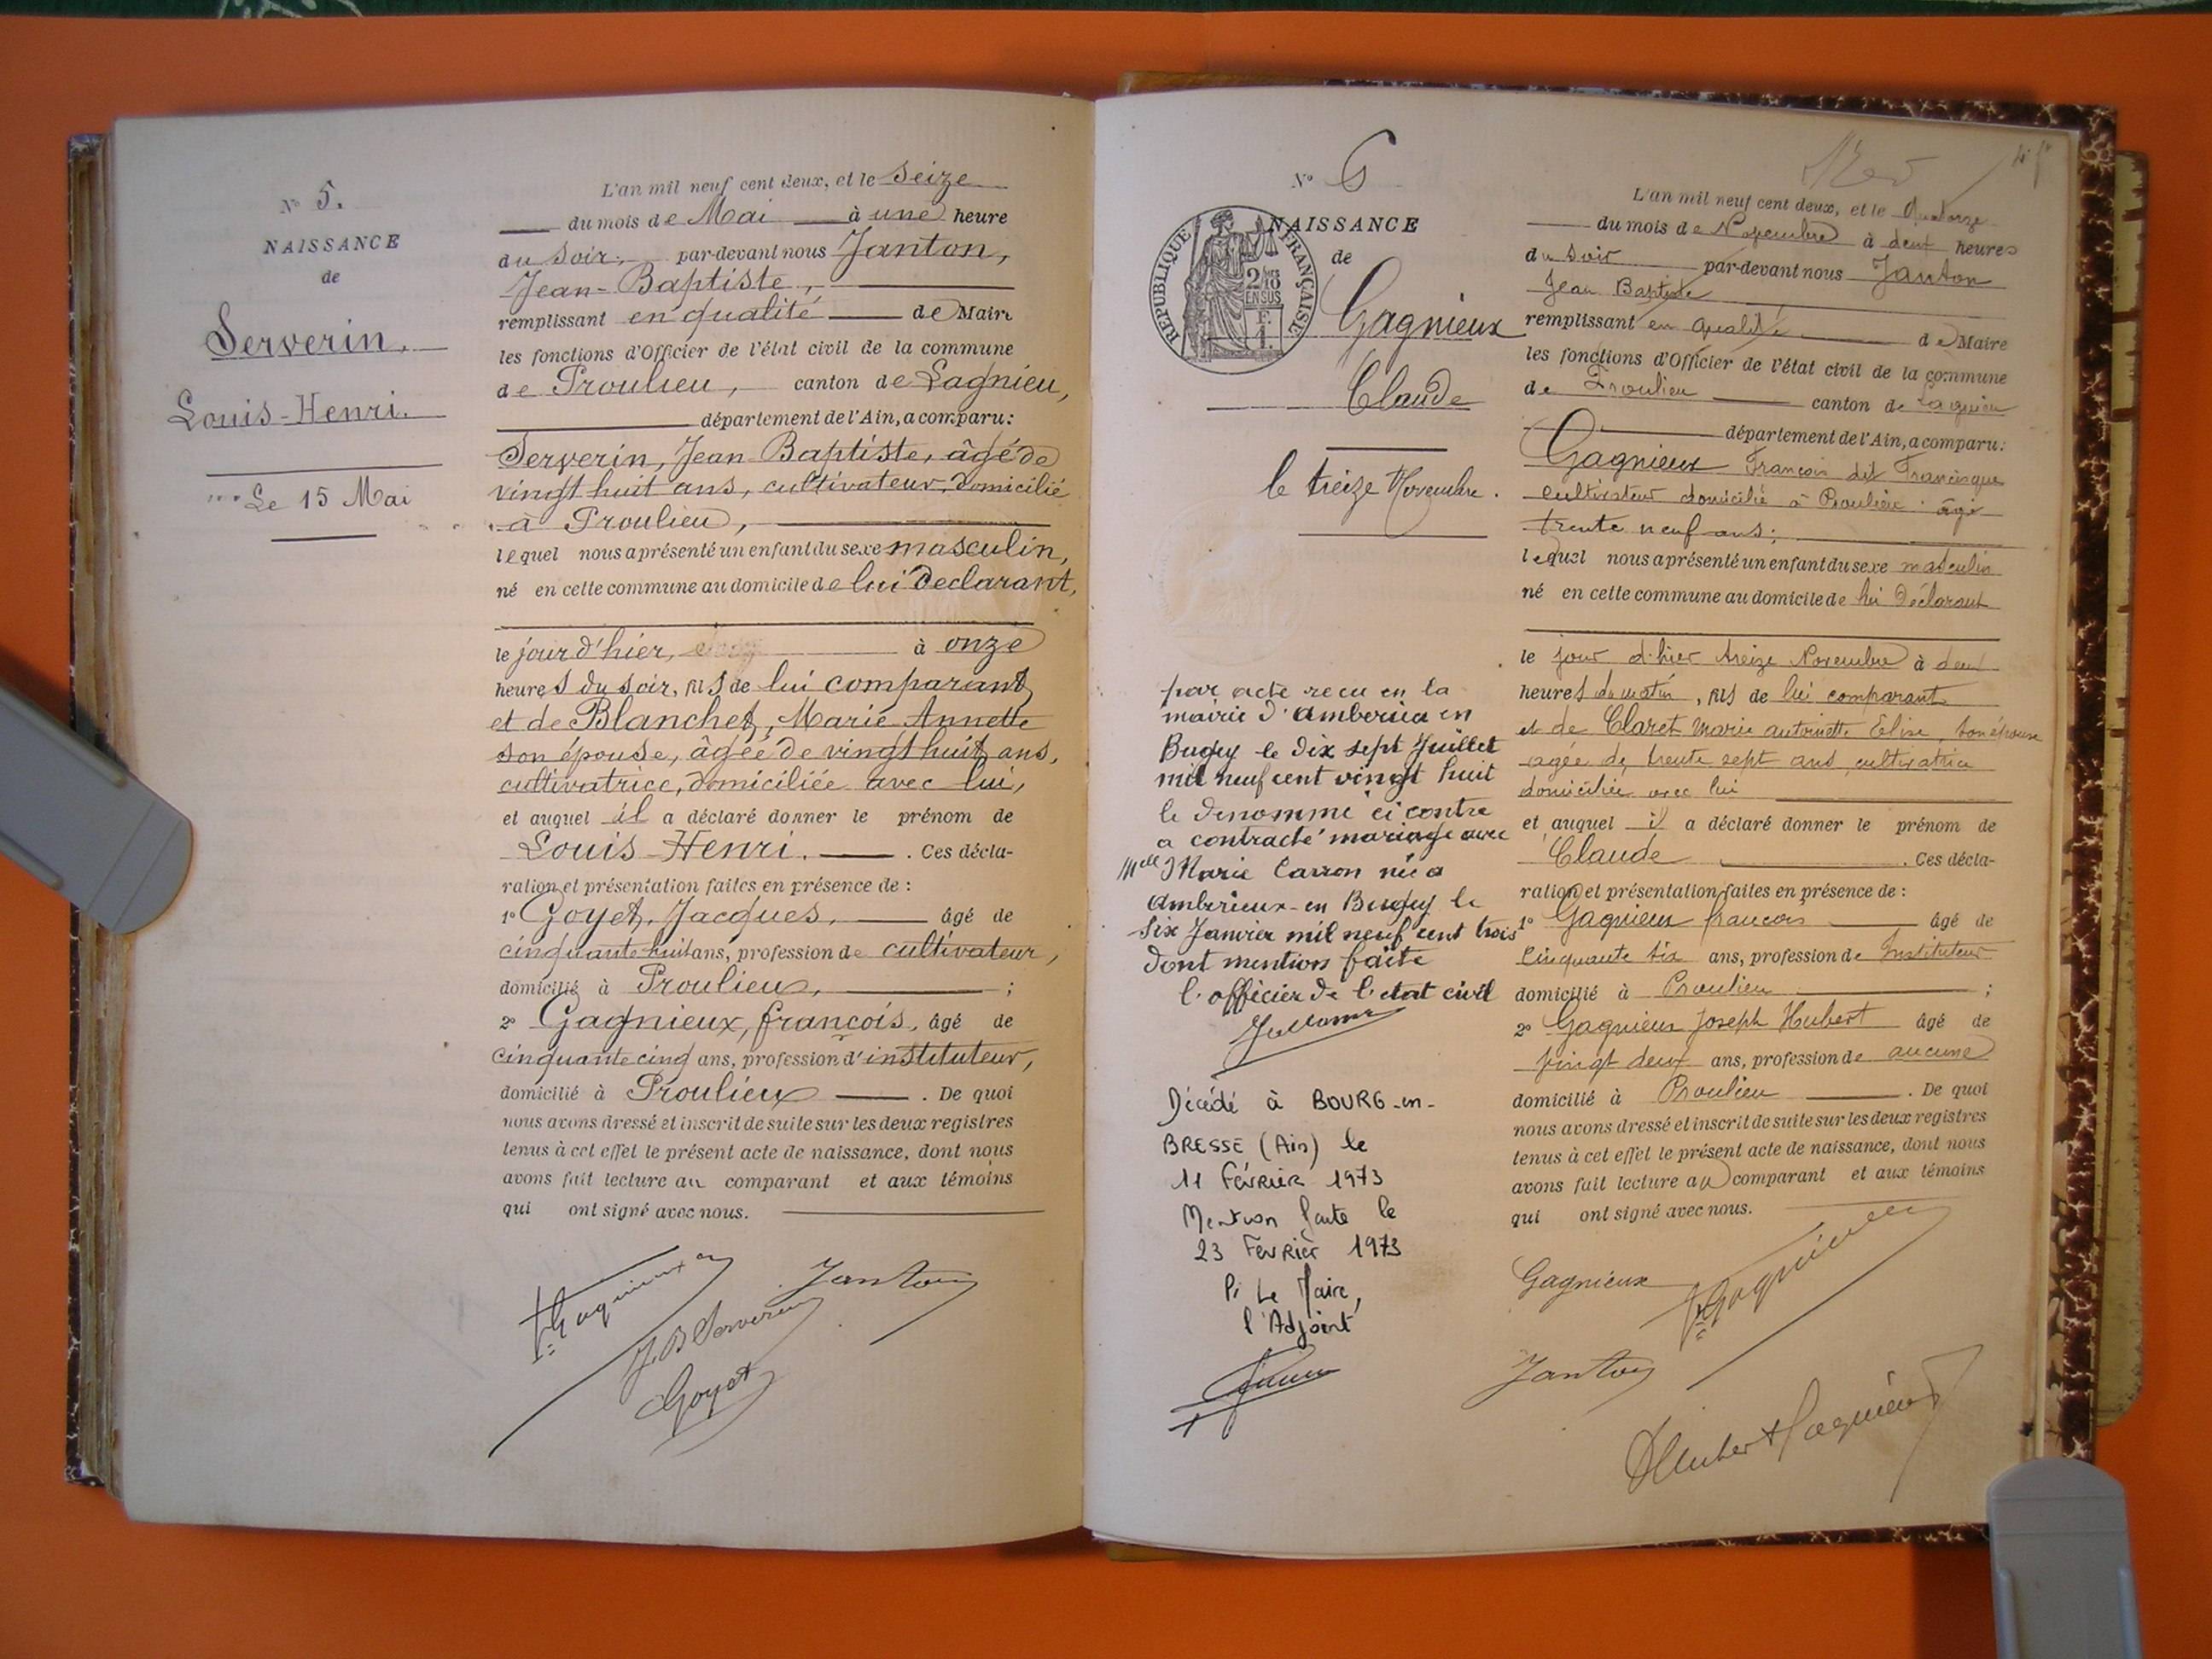 N° 5.
NAISSANCE
de
Serverin,
Louis-Henri.
Le 15 Mai
L'an mil neuf cent deux, et le seize
du mois de Mai à une heure
du soir, par-devant nous Janton,
Jean-Baptiste,
remplissant en qualité de Maire
les fonctions d'Officier de l'état civil de la commune
de Proulieu, canton de Lagnieu,
département de l'Ain, a comparu:
Serverin, Jean Baptiste, âgé de
vingt huit ans, cultivateur, domicilié
à Proulieu,
lequel nous a présenté un enfant du sexe masculin,
né en cette commune au domicile de lui déclarant,
le jour d'hier, à onze
heures du soir, fils de lui comparant
et de Blanchet, Marie Annette
son épouse, âgée de vingt huit ans,
cultivatrice, domiciliée avec lui,
et auquel il a déclaré donner le prénom de
Louis-Henri. . Ces décla-
ration et présentation faites en présence de :
1° Goyet, Jacques, âgé de
cinquante huit ans, profession de cultivateur,
domicilié à Proulieu, ;
2° Gagnieux, françois, âgé de
cinquante cinq ans, profession d'instituteur,
domicilié à Proulieu . De quoi
nous avons dressé et inscrit de suite sur les deux registres
tenus à cet effet le présent acte de naissance, dont nous
avons fait lecture au comparant et aux témoins
qui ont signé avec nous.
fs Gagnieux Janton
J. B Serverin
Goyet
N° 6
NAISSANCE
de
REPUBLIQUE FRANÇAISE
2/10
EN SUS
Gagnieux
Claude
le treize Novembre.
par acte recu en la
mairie d'Amberieu en
Bugey le dix sept Juillet
mil neuf cent vingt huit
le denommé ci contre
a contracté mariage avec
Melle Marie Carron née a
Amberieux-en Bugey le
Six Janvier mil neuf cent trois
dont mention faite
l'officier de l'etat civil
Décédé à BOURG-en-
BRESSE (Ain) le
11 Février 1973
Mention faite le
23 Février 1973
P. Le Maire,
l'Adjoint
L'an mil neuf cent deux, et le Quatorze
du mois de Novembre à deux heures
du soir par-devant nous Janton
Jean Baptiste
remplissant en qualité de Maire
les fonctions d'Officier de l'état civil de la commune
de Proulieu canton de Lagnieu
département de l'Ain, a comparu:
Gagnieux François dit Francisque
cultivateur domicilié à Proulieu âgé
trente neuf ans;
lequel nous a présenté un enfant du sexe masculin
né en cette commune au domicile de lui déclarant
le jour d'hier treize Novembre à deux
heures du matin, fils de lui comparant
et de Claret Marie antoinette Elise, son épouse
agée de trente sept ans, cultivatrice
domiciliée avec lui
et auquel il a déclaré donner le prénom de
Claude . Ces décla-
ration et présentation faites en présence de :
1° Gagnieux francois âgé de
Cinquante six ans, profession de Instituteur
domicilié à Proulieu ;
2° Gagnieux Joseph Hubert âgé de
vingt deux ans, profession de aucune
domicilié à Proulieu . De quoi
nous avons dressé et inscrit de suite sur les deux registres
tenus à cet effet le présent acte de naissance, dont nous
avons fait lecture au comparant et aux témoins
qui ont signé avec nous.
Gagnieux fs Gagnieux
Janton
Hubert Gagnieux